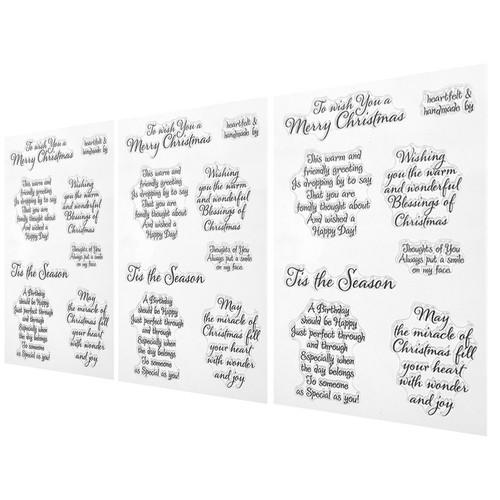 To wish You a
Merry Christmas
heartfelt &
handmade by
This warm and
friendly greeting
Is dropping by to say
That you are
fondly thought about
And wished a
Happy Day!
Wishing
you the warm
and wonderful
Blessings of
Christmas
Thoughts of You
Always put a smile
on my face.
Tis the Season
A Birthday
should be Happy
Just perfect through
and through
Especially when
the day belongs
To someone
as Special as you!
May
the miracle of
Christmas fill
your heart
with wonder
and joy
To wish You a
Merry Christmas
heartfelt &
handmade by
This warm and
friendly greeting
Is dropping by to say
That you are
fondly thought about
And wished a
Happy Day!
Wishing
you the warm
and wonderful
Blessings of
Christmas
Thoughts of You
Always put a smile
on my face.
Tis the Season
A Birthday
should be Happy
Just perfect through
and through
Especially when
the day belongs
To someone
as Special as you!
May
the miracle of
Christmas fill
your heart
with wonder
and joy
To wish You a
Merry Christmas
heartfelt &
handmade by
This warm and
friendly greeting
Is dropping by to say
That you are
fondly thought about
And wished a
Happy Day!
Wishing
you the warm
and wonderful
Blessings of
Christmas
Thoughts of You
Always put a smile
on my face.
Tis the Season
A Birthday
should be Happy
Just perfect through
and through
Especially when
the day belongs
To someone
as Special as you!
May
the miracle of
Christmas fill
your heart
with wonder
and joy